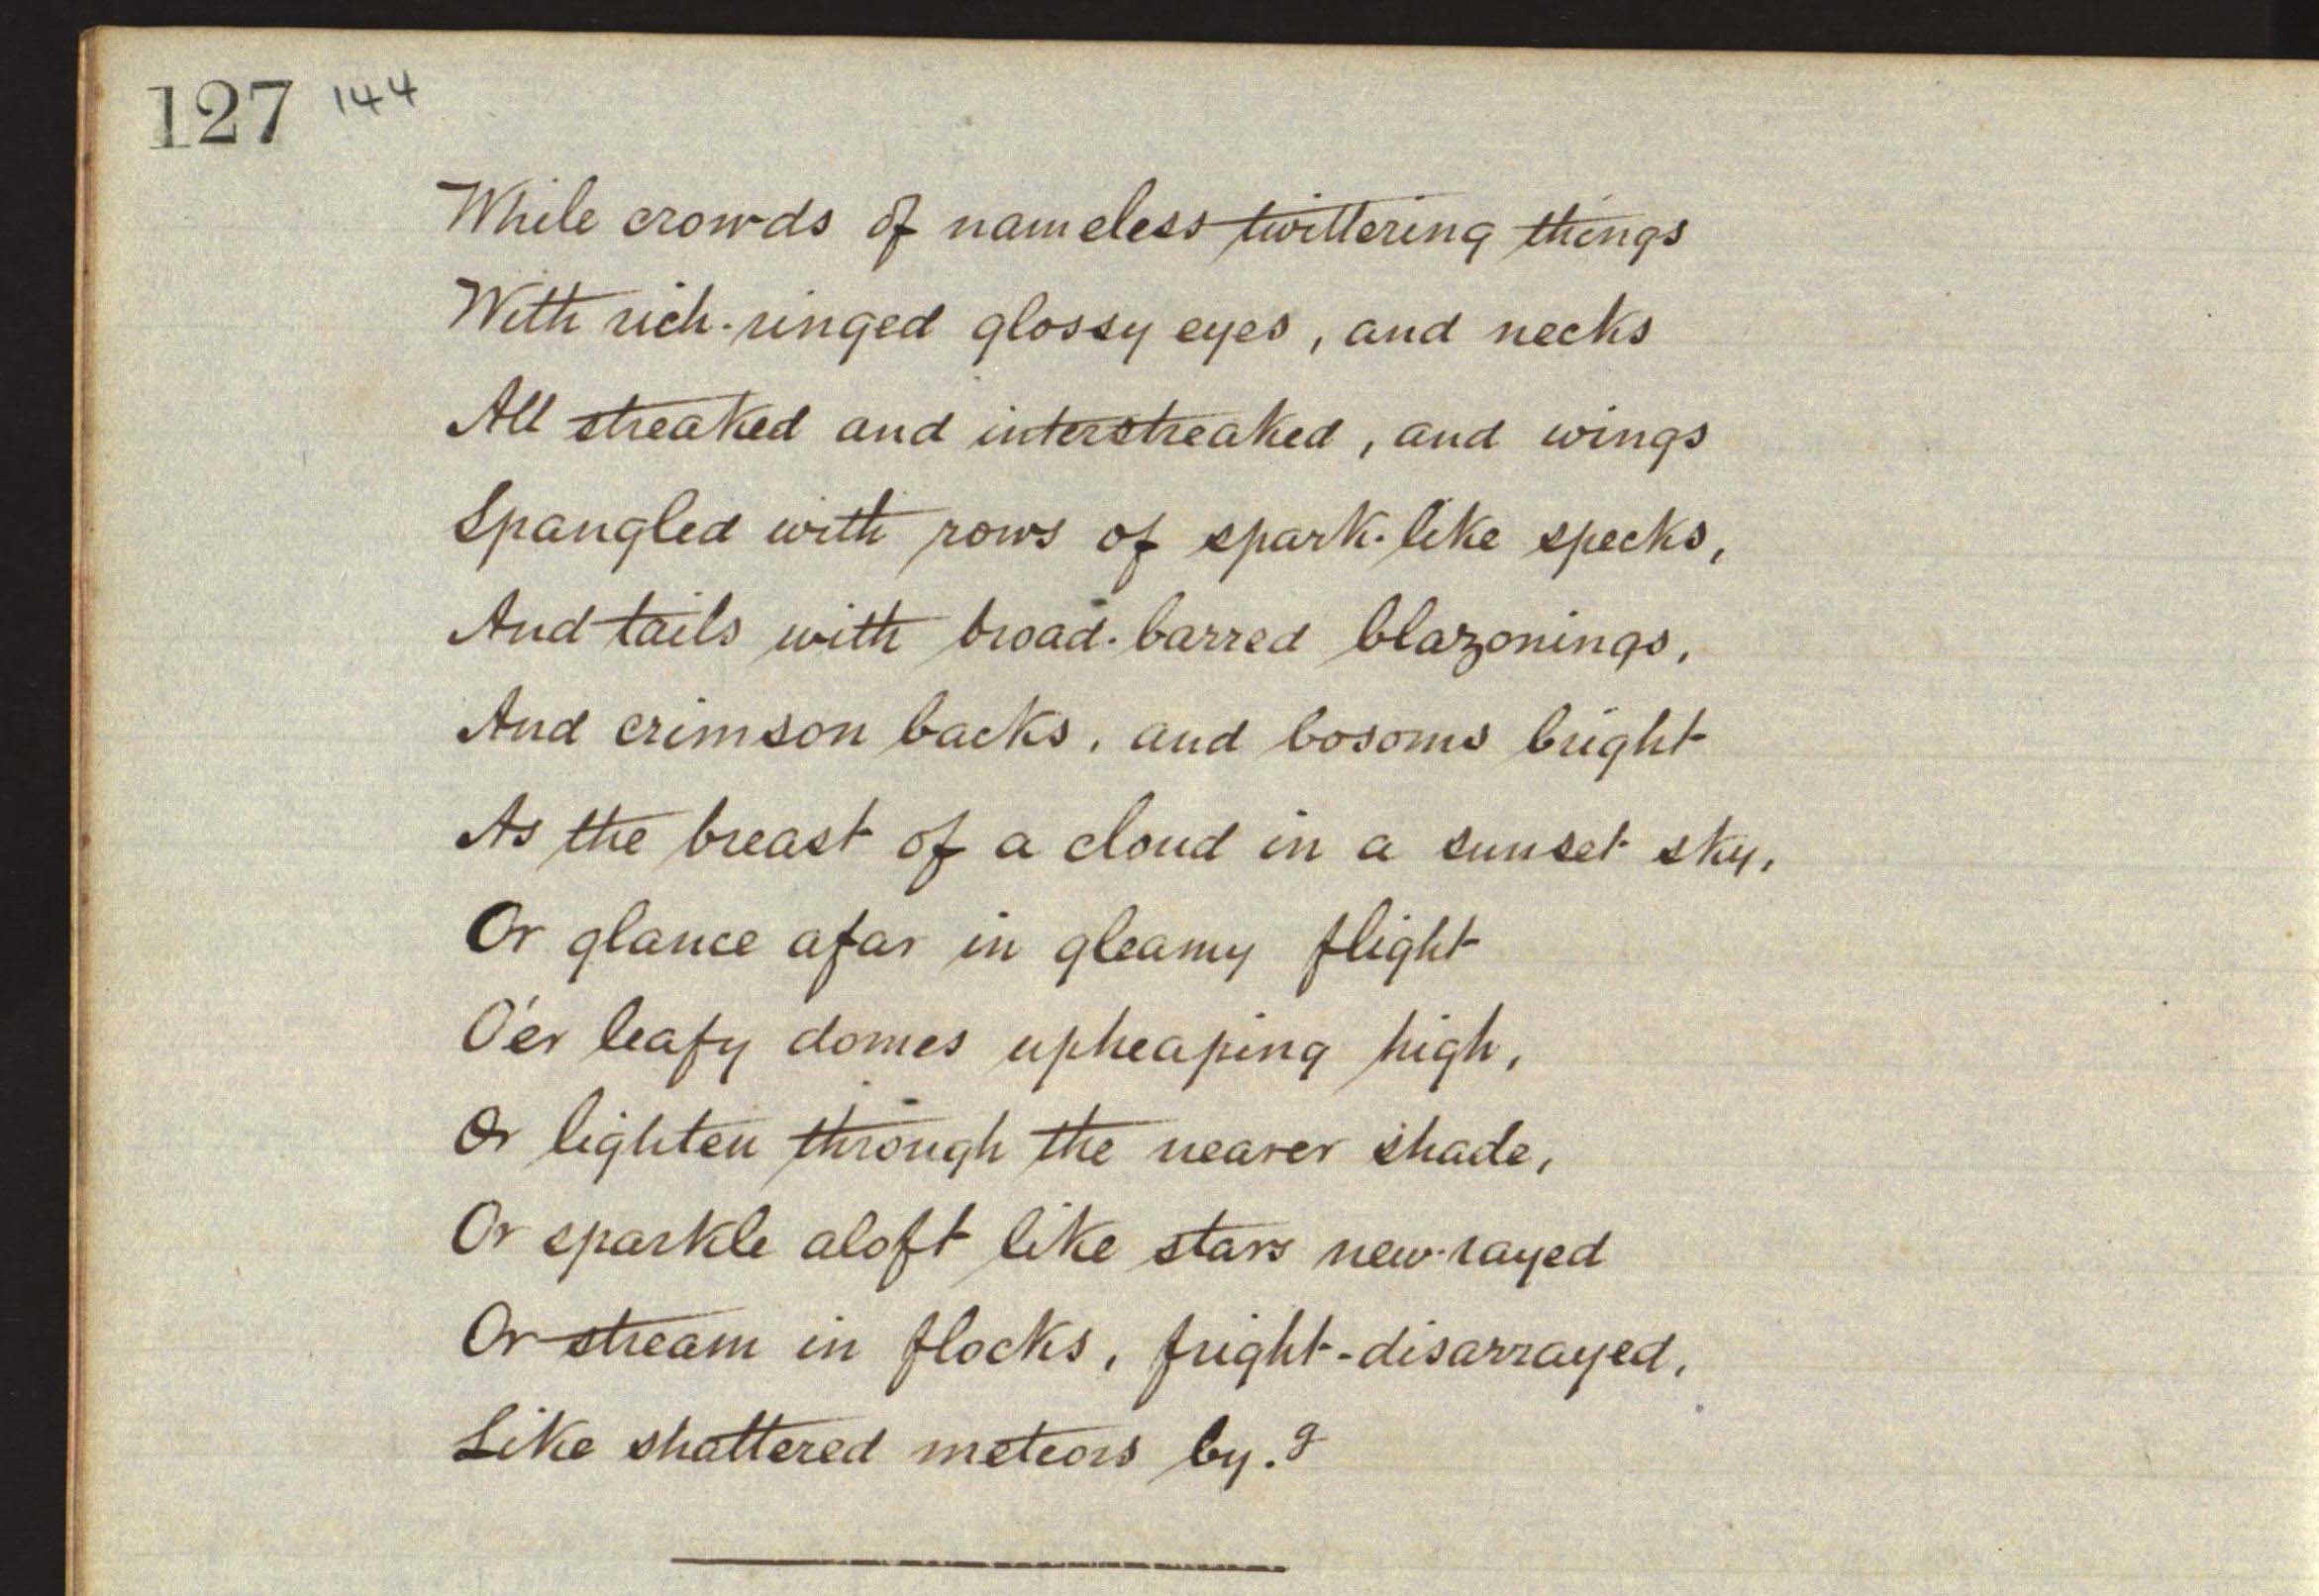 127 144
While crowds of nameless twittering things
With rich-ringed glossy eyes, and necks
All streaked and interstreaked, and wings
Spangled with rows of spark-like specks,
And tails with broad-barred blazonings,
And crimson backs, and bosoms bright
As the breast of a cloud in a sunset sky,
Or glance afar in gleamy flight
O'er leafy domes upheaping high,
Or lighten through the nearer shade,
Or sparkle aloft like stars new-rayed
Or stream in flocks, fright-disarrayed,
Like shattered meteors by.?